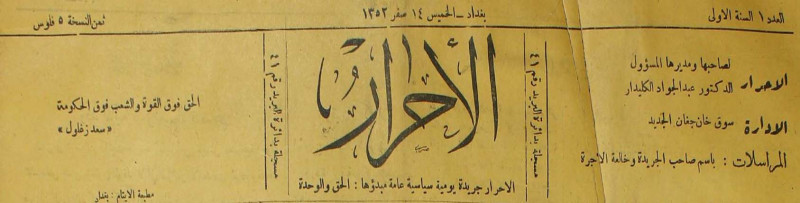 العدد ١ السنة الاولى
بغداد – الخميس ١٤ صفر ١٣٥٣
ثمن النسخة ٥ فلوس
لصاحبها ومديرها المسؤول
الاحرار الدكتور عبدالجواد الكليدار
الادارة سوق خان جغان الجديد
المراسلات : باسم صاحب الجريدة وخالصة الاجرة
مسجلة بدائرة البريد رقم ٤١
الأحرار
الاحرار جريدة يومية سياسية عامة مبدؤها : الحق والوحدة
مسجلة بدائرة البريد رقم ٤١
الحق فوق القوة والشعب فوق الحكومة
« سعد زغلول »
مطبعة الايتام : بغداد